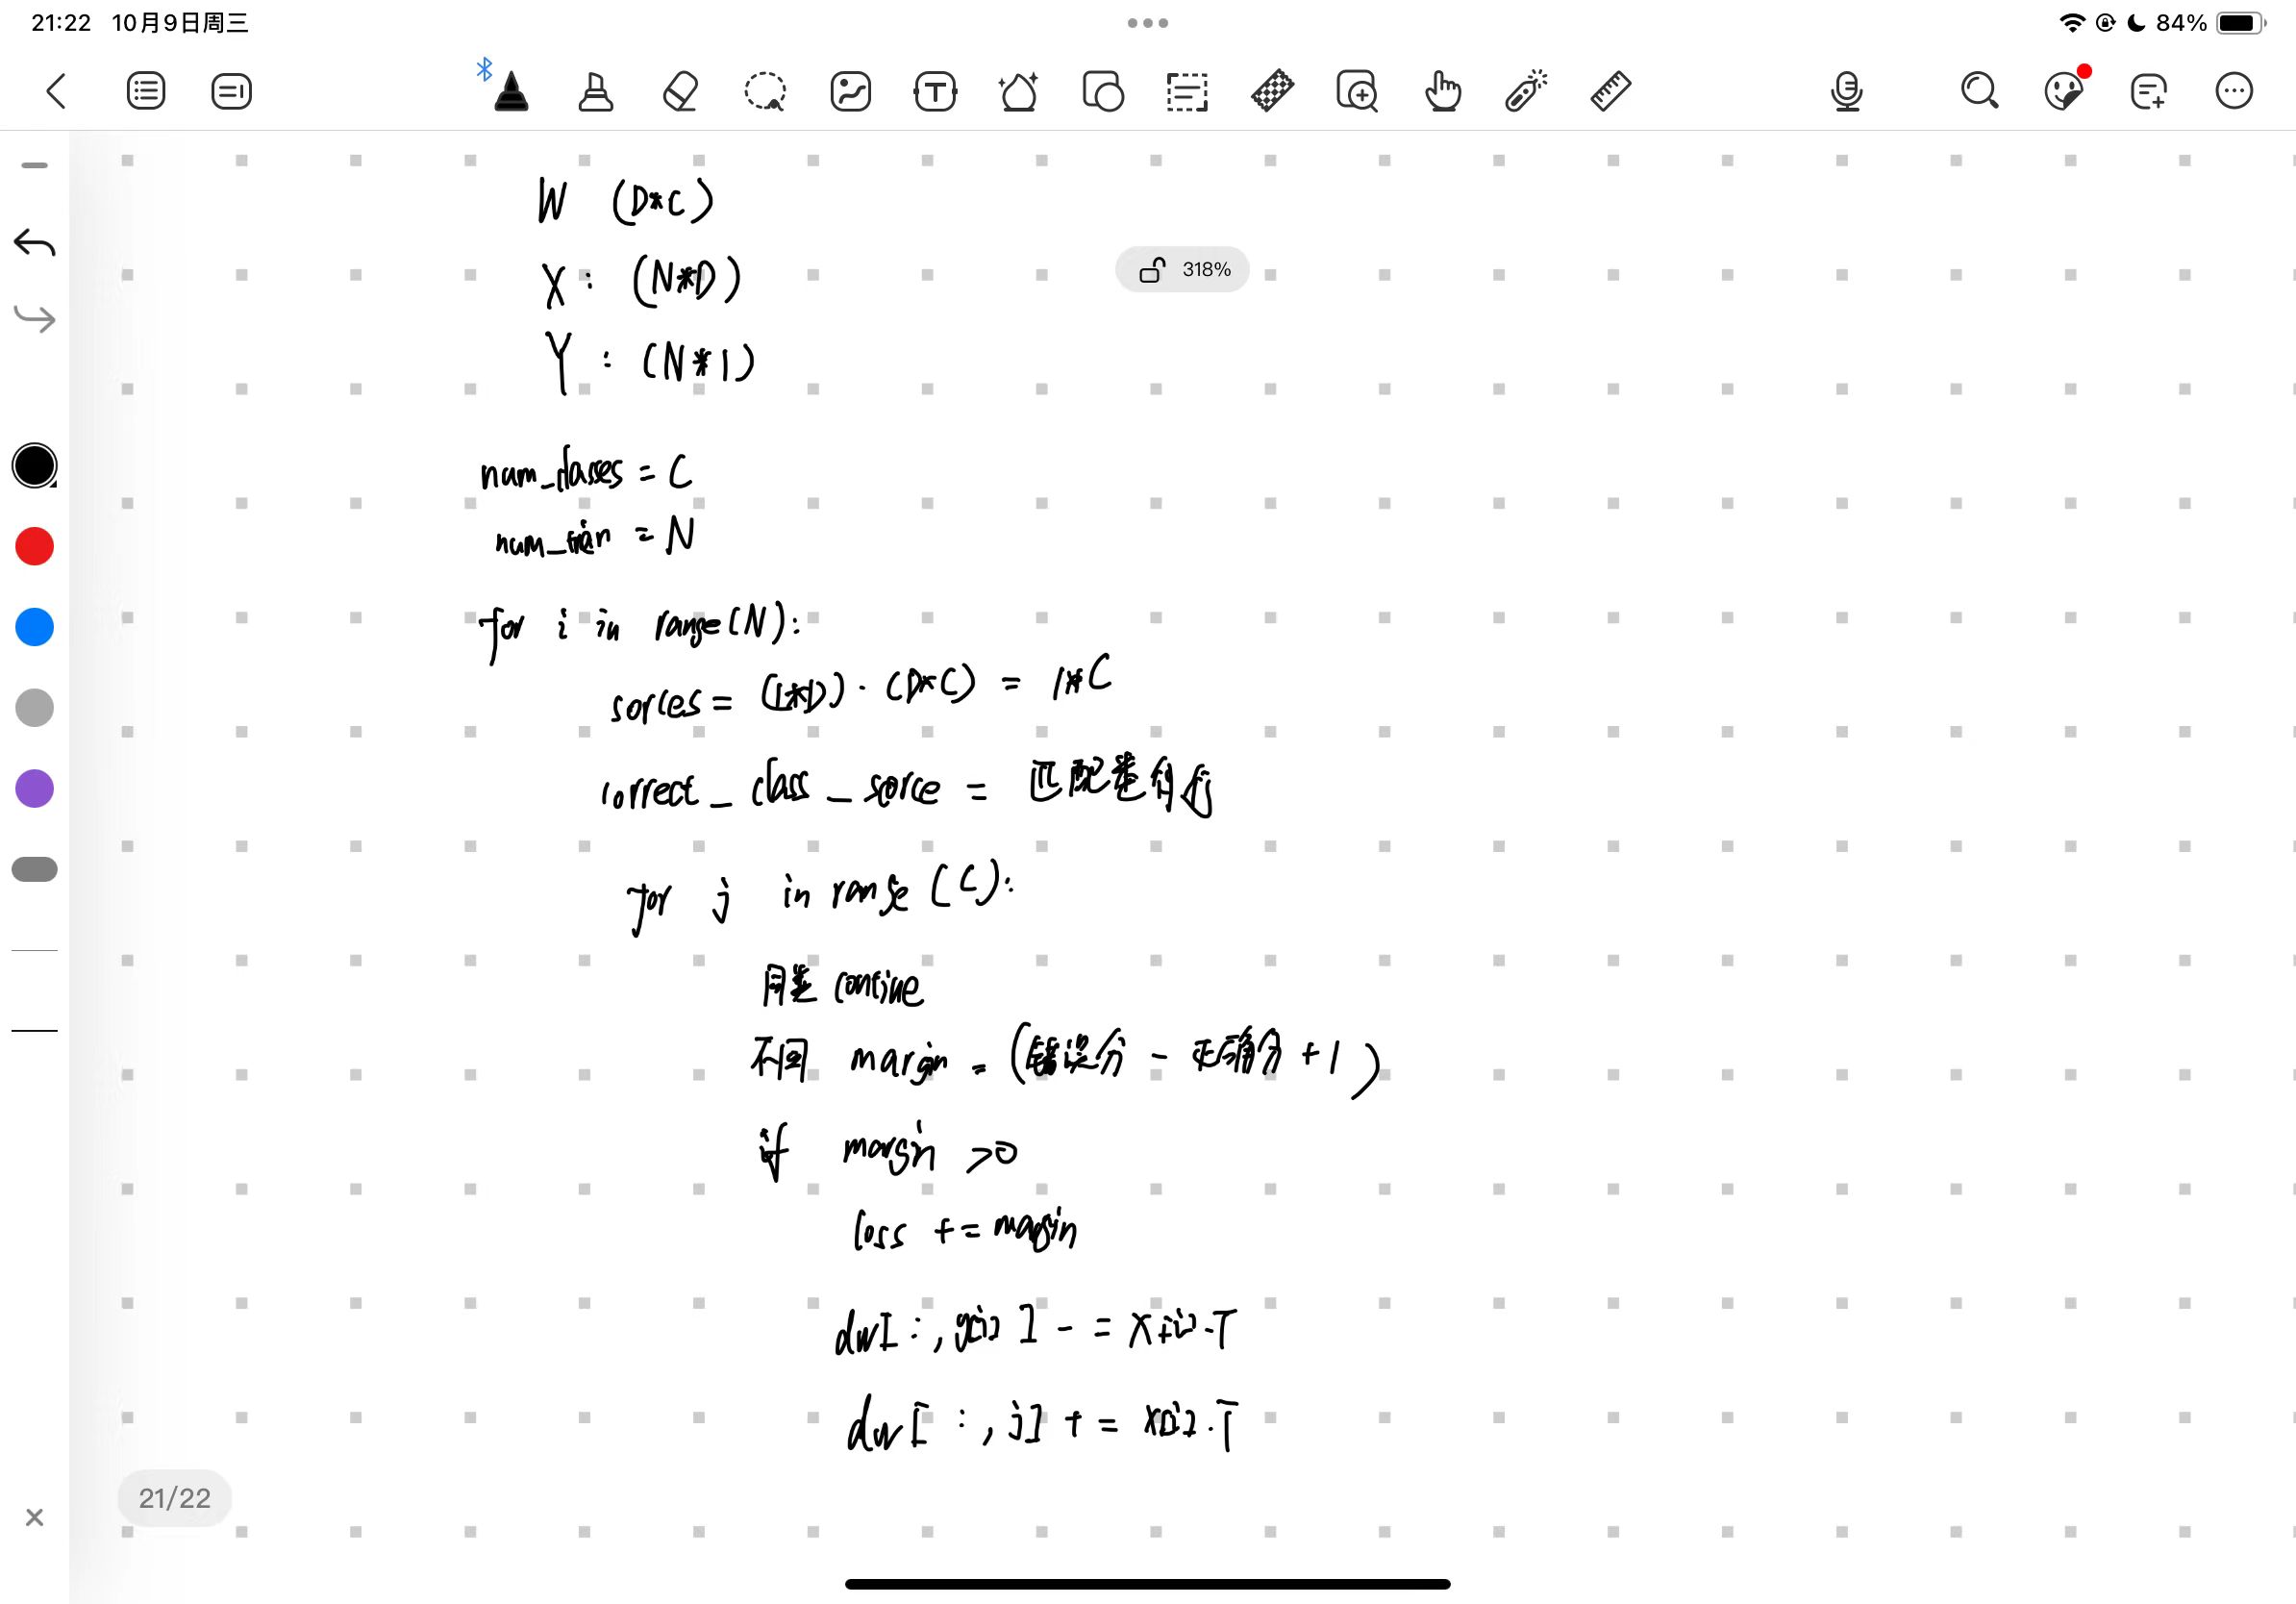 21:22 10月9日周三
84%
318%
W (D*C)
X : (N*D)
Y : (N*1)
num_classes = C
num_train = N
for i in range(N):
sorces = (1*D) · (D*C) = 1*C
correct_class_sorce = 匹配类的值
for j in range(C):
同类 contine
不同 margin = (错误分 - 正确分 + 1)
if margin >0
loss += margin
dw[:,y[i]] -= X[i].T
dw[:,j] += X[i].T
21/22